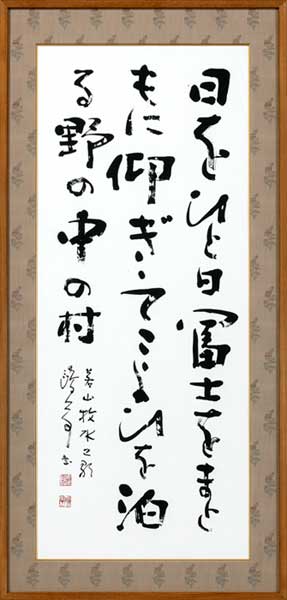 日をひと日富士をまと
もに仰ぎ来てこよひを泊
る野の中の村
若山牧水之歌